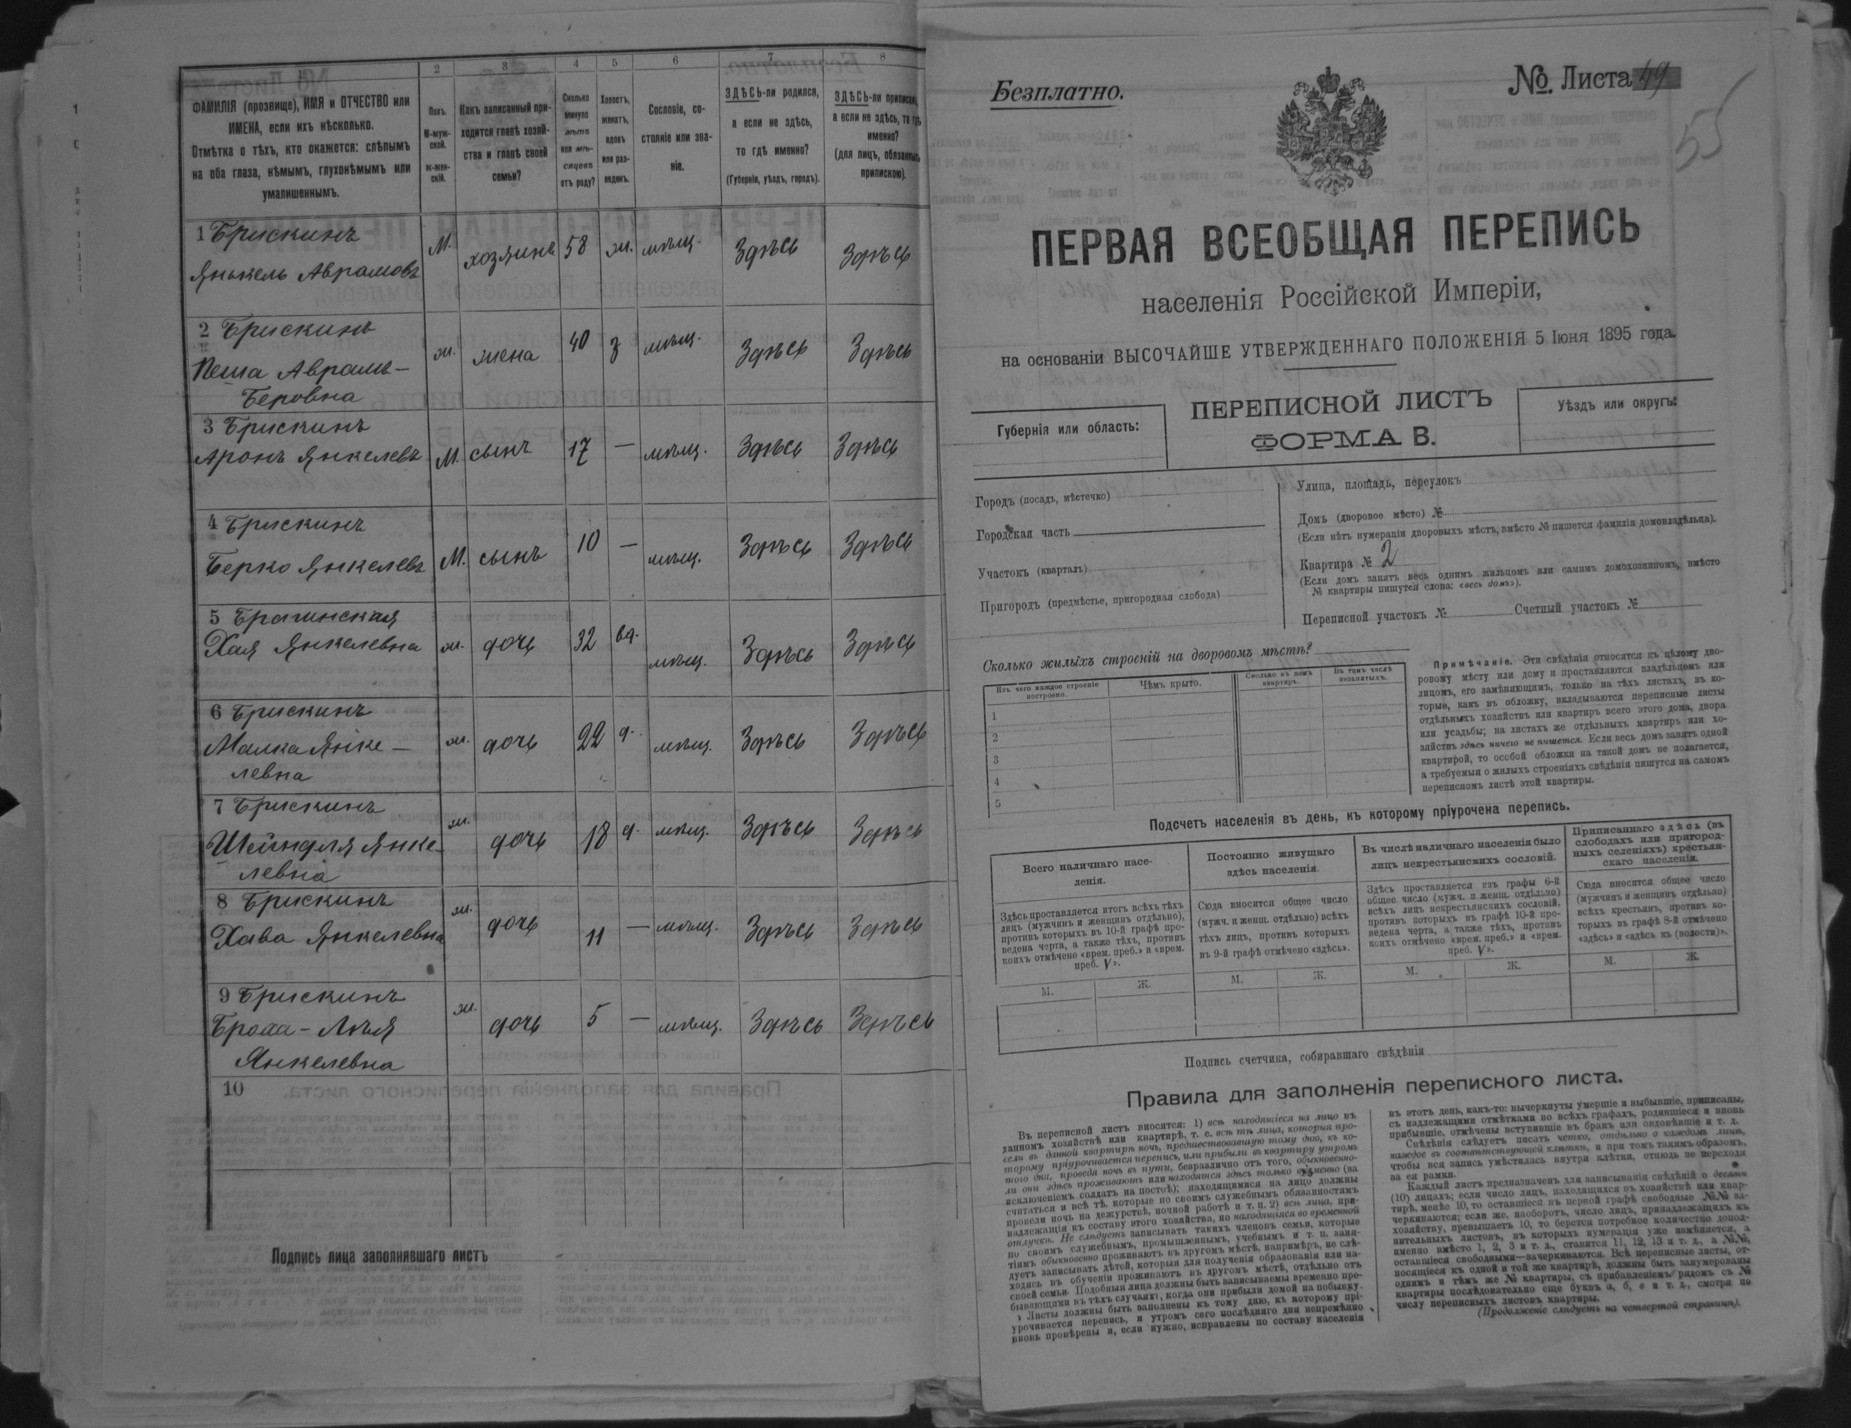 1
ФАМИЛІЯ (прозвище), ИМЯ и ОТЧЕСТВО или
ИМЕНА, если ихъ нѣсколько.
Отмѣтка о тѣхъ, кто окажется: слѣпымъ
на оба глаза, нѣмымъ, глухонѣмымъ или
умалишеннымъ.
2
Полъ.
М-муж-
ской.
ж-жен-
скій.
3
Какъ записанный при-
ходится главѣ хозяй-
ства и главѣ своей
семьи?
4
Сколько
минуло
лѣтъ
или мѣ-
сяцевъ
отъ роду?
5
Холостъ,
женатъ,
вдовъ
или раз-
веденъ.
6
Сословіе, со-
стояніе или зва-
ніе.
7
ЗДѢСЬ-ли родился,
а если не здѣсь,
то гдѣ именно?
(Губернія, уѣздъ, городъ).
8
ЗДѢСЬ-ли приписанъ,
а если не здѣсь, то гдѣ
именно?
(для лицъ, обязанныхъ
припискою).
1 Брискинъ
Янкель Аврамовъ М. хозяинъ 58 ж. мѣщ. Здѣсь Здѣсь
2 Брискинъ
Пеша Аврамъ- ж. жена 40 з мѣщ. Здѣсь Здѣсь
Беровна
3 Брискинъ
Аронъ Янкелевъ М. сынъ 17 — мѣщ. Здѣсь Здѣсь
4 Брискинъ
Берко Янкелевъ М. сынъ 10 — мѣщ. Здѣсь Здѣсь
5 Брагинская
Хая Янкелевна ж. дочь 32 вд. мѣщ. Здѣсь Здѣсь
6 Брискинъ
Малка Янке- ж. дочь 22 д. мѣщ. Здѣсь Здѣсь
левна
7 Брискинъ
Шейндля Янке- ж. дочь 18 д. мѣщ. Здѣсь Здѣсь
левна
8 Брискинъ
Хава Янкелевна ж. дочь 11 — мѣщ. Здѣсь Здѣсь
9 Брискинъ
Броха-Лѣя ж. дочь 5 — мѣщ. Здѣсь Здѣсь
Янкелевна
10
Подпись лица заполнявшаго листъ
Безплатно.
№ Листа 49
55
ПЕРВАЯ ВСЕОБЩАЯ ПЕРЕПИСЬ
населенія Россійской Имперіи,
на основаніи ВЫСОЧАЙШЕ УТВЕРЖДЕННАГО ПОЛОЖЕНІЯ 5 Іюня 1895 года.
Губернія или область:
ПЕРЕПИСНОЙ ЛИСТЪ
ФОРМА В.
Уѣздъ или округъ:
Городъ (посадъ, мѣстечко)
Городская часть
Участокъ (кварталъ)
Пригородъ (предмѣстье, пригородная слобода)
Улица, площадь, переулокъ
Домъ (дворовое мѣсто) №
(Если нѣтъ нумераціи дворовыхъ мѣстъ, вмѣсто № пишется фамилія домовладѣльца).
Квартира № 2
(Если домъ занятъ весь однимъ жильцомъ или самимъ домохозяиномъ, вмѣсто
№ квартиры пишутся слова: «весь домъ»).
Переписной участокъ № Счетный участокъ №
Сколько жилыхъ строеній на дворовомъ мѣстѣ?
Изъ чего каждое строеніе
построено.
Чѣмъ крыто.
Сколько въ немъ
квартиръ.
Въ томъ числѣ
незанятыхъ.
1
2
3
4
5
Примѣчаніе. Эти свѣдѣнія относятся къ цѣлому дво-
ровому мѣсту или дому и проставляются владѣльцемъ или
лицомъ, его замѣняющимъ, только на тѣхъ листахъ, въ ко-
торые, какъ въ обложку, вкладываются переписные листы
отдѣльныхъ хозяйствъ или квартиръ всего этого дома, двора
или усадьбы; на листахъ же отдѣльныхъ квартиръ или хо-
зяйствъ здѣсь ничего не пишется. Если весь домъ занятъ одной
квартирой, то особой обложки на такой домъ не полагается,
а требуемыя о жилыхъ строеніяхъ свѣдѣнія пишутся на самомъ
переписномъ листѣ этой квартиры.
Подсчетъ населенія въ день, къ которому пріурочена перепись.
Всего наличнаго насе-
ленія.
Здѣсь проставляется итогъ всѣхъ тѣхъ
лицъ (мужчинъ и женщинъ отдѣльно),
противъ которыхъ въ 10-й графѣ про-
ведена черта, а также тѣхъ, противъ
коихъ отмѣчено «врем. преб.» и «врем.
преб. V».
М. Ж.
Постоянно живущаго
здѣсь населенія.
Сюда вносится общее число
(мужч. и женщ. отдѣльно) всѣхъ
тѣхъ лицъ, противъ которыхъ
въ 9-й графѣ отмѣчено «здѣсь».
М. Ж.
Въ числѣ наличнаго населенія было
лицъ некрестьянскихъ сословій.
Здѣсь проставляется изъ графы 6-й
общее число (мужч. и женщ. отдѣльно)
всѣхъ лицъ некрестьянскихъ сословій,
противъ которыхъ въ графѣ 10-й про-
ведена черта, а также тѣхъ, противъ
коихъ отмѣчено «врем. преб.» и «врем.
преб. V».
М. Ж.
Приписаннаго здѣсь (въ
слободахъ или пригород-
ныхъ селеніяхъ) крестьян-
скаго населенія.
Сюда вносится общее число
(мужчинъ и женщинъ отдѣльно)
всѣхъ крестьянъ, противъ ко-
торыхъ въ графѣ 8-й отмѣчено
«здѣсь» и «здѣсь къ (волости)».
М. Ж.
Подпись счетчика, собиравшаго свѣдѣнія
Правила для заполненія переписного листа.
Въ переписной листъ вносятся: 1) всѣ находящіеся на лицо въ
данномъ хозяйствѣ или квартирѣ, т. е. всѣ тѣ лица, которыя про-
вели въ данной квартирѣ ночь, предшествовавшую тому дню, къ ко-
торому пріурочивается перепись, или прибыли въ квартиру утромъ
того дня, проведя ночь въ пути, безразлично отъ того, обыкновенно-
ли они здѣсь проживаютъ или находятся здѣсь только временно (за
исключеніемъ солдатъ на постоѣ); находящимися на лицо должны
считаться и всѣ тѣ, которые по своимъ служебнымъ обязанностямъ
провели ночь на дежурствѣ, ночной работѣ и т. п. 2) всѣ лица, при-
надлежащія къ составу этого хозяйства, но находящіяся во временной
отлучкѣ. Не слѣдуетъ записывать такихъ членовъ семьи, которые
по своимъ служебнымъ, промышленнымъ, учебнымъ и т. п. заня-
тіямъ обыкновенно проживаютъ въ другомъ мѣстѣ, напримѣръ, не слѣ-
дуетъ записывать дѣтей, которыя для полученія образованія или на-
ходясь въ обученіи проживаютъ въ другомъ мѣстѣ, отдѣльно отъ
своей семьи. Подобныя лица должны быть записываемы временно пре-
бывающими въ тѣхъ случаяхъ, когда они прибыли домой на побывку.
Листы должны быть заполнены къ тому дню, къ которому прі-
урочивается перепись, и утромъ сего послѣдняго дня непремѣнно
вновь провѣрены и, если нужно, исправлены по составу населенія
въ этотъ день, какъ-то: вычеркнуты умершіе и выбывшіе, приписаны,
съ надлежащими отмѣтками во всѣхъ графахъ, родившіеся и вновь
прибывшіе, отмѣчены вступившіе въ бракъ или овдовѣвшіе и т. д.
Свѣдѣнія слѣдуетъ писать четко, отдѣльно о каждомъ лицѣ,
каждое въ соотвѣтствующей клѣткѣ, и при томъ такимъ образомъ,
чтобы вся запись умѣстилась внутри клѣтки, отнюдь не переходя
за ея рамки.
Каждый листъ предназначенъ для записыванія свѣдѣній о десяти
(10) лицахъ; если число лицъ, находящихся въ хозяйствѣ или квар-
тирѣ, менѣе 10, то оставшіеся въ первой графѣ свободные №№ за-
черкиваются; если же, наоборотъ, число лицъ, принадлежащихъ къ
хозяйству, превышаетъ 10, то берется потребное количество допол-
нительныхъ листовъ, въ которыхъ нумерація уже измѣняется, а
именно вмѣсто 1, 2, 3 и т. д., ставятся 11, 12, 13 и т. д., а №№,
оставшіеся свободными—зачеркиваются. Всѣ переписные листы, от-
носящіеся къ одной и той же квартирѣ, должны быть занумерованы
однимъ и тѣмъ же № квартиры, съ прибавленіемъ рядомъ съ №
квартиры послѣдовательно еще буквъ а, б, в и т. д., смотря по
числу переписныхъ листовъ квартиры.
(Продолженіе слѣдуетъ на четвертой страницѣ).